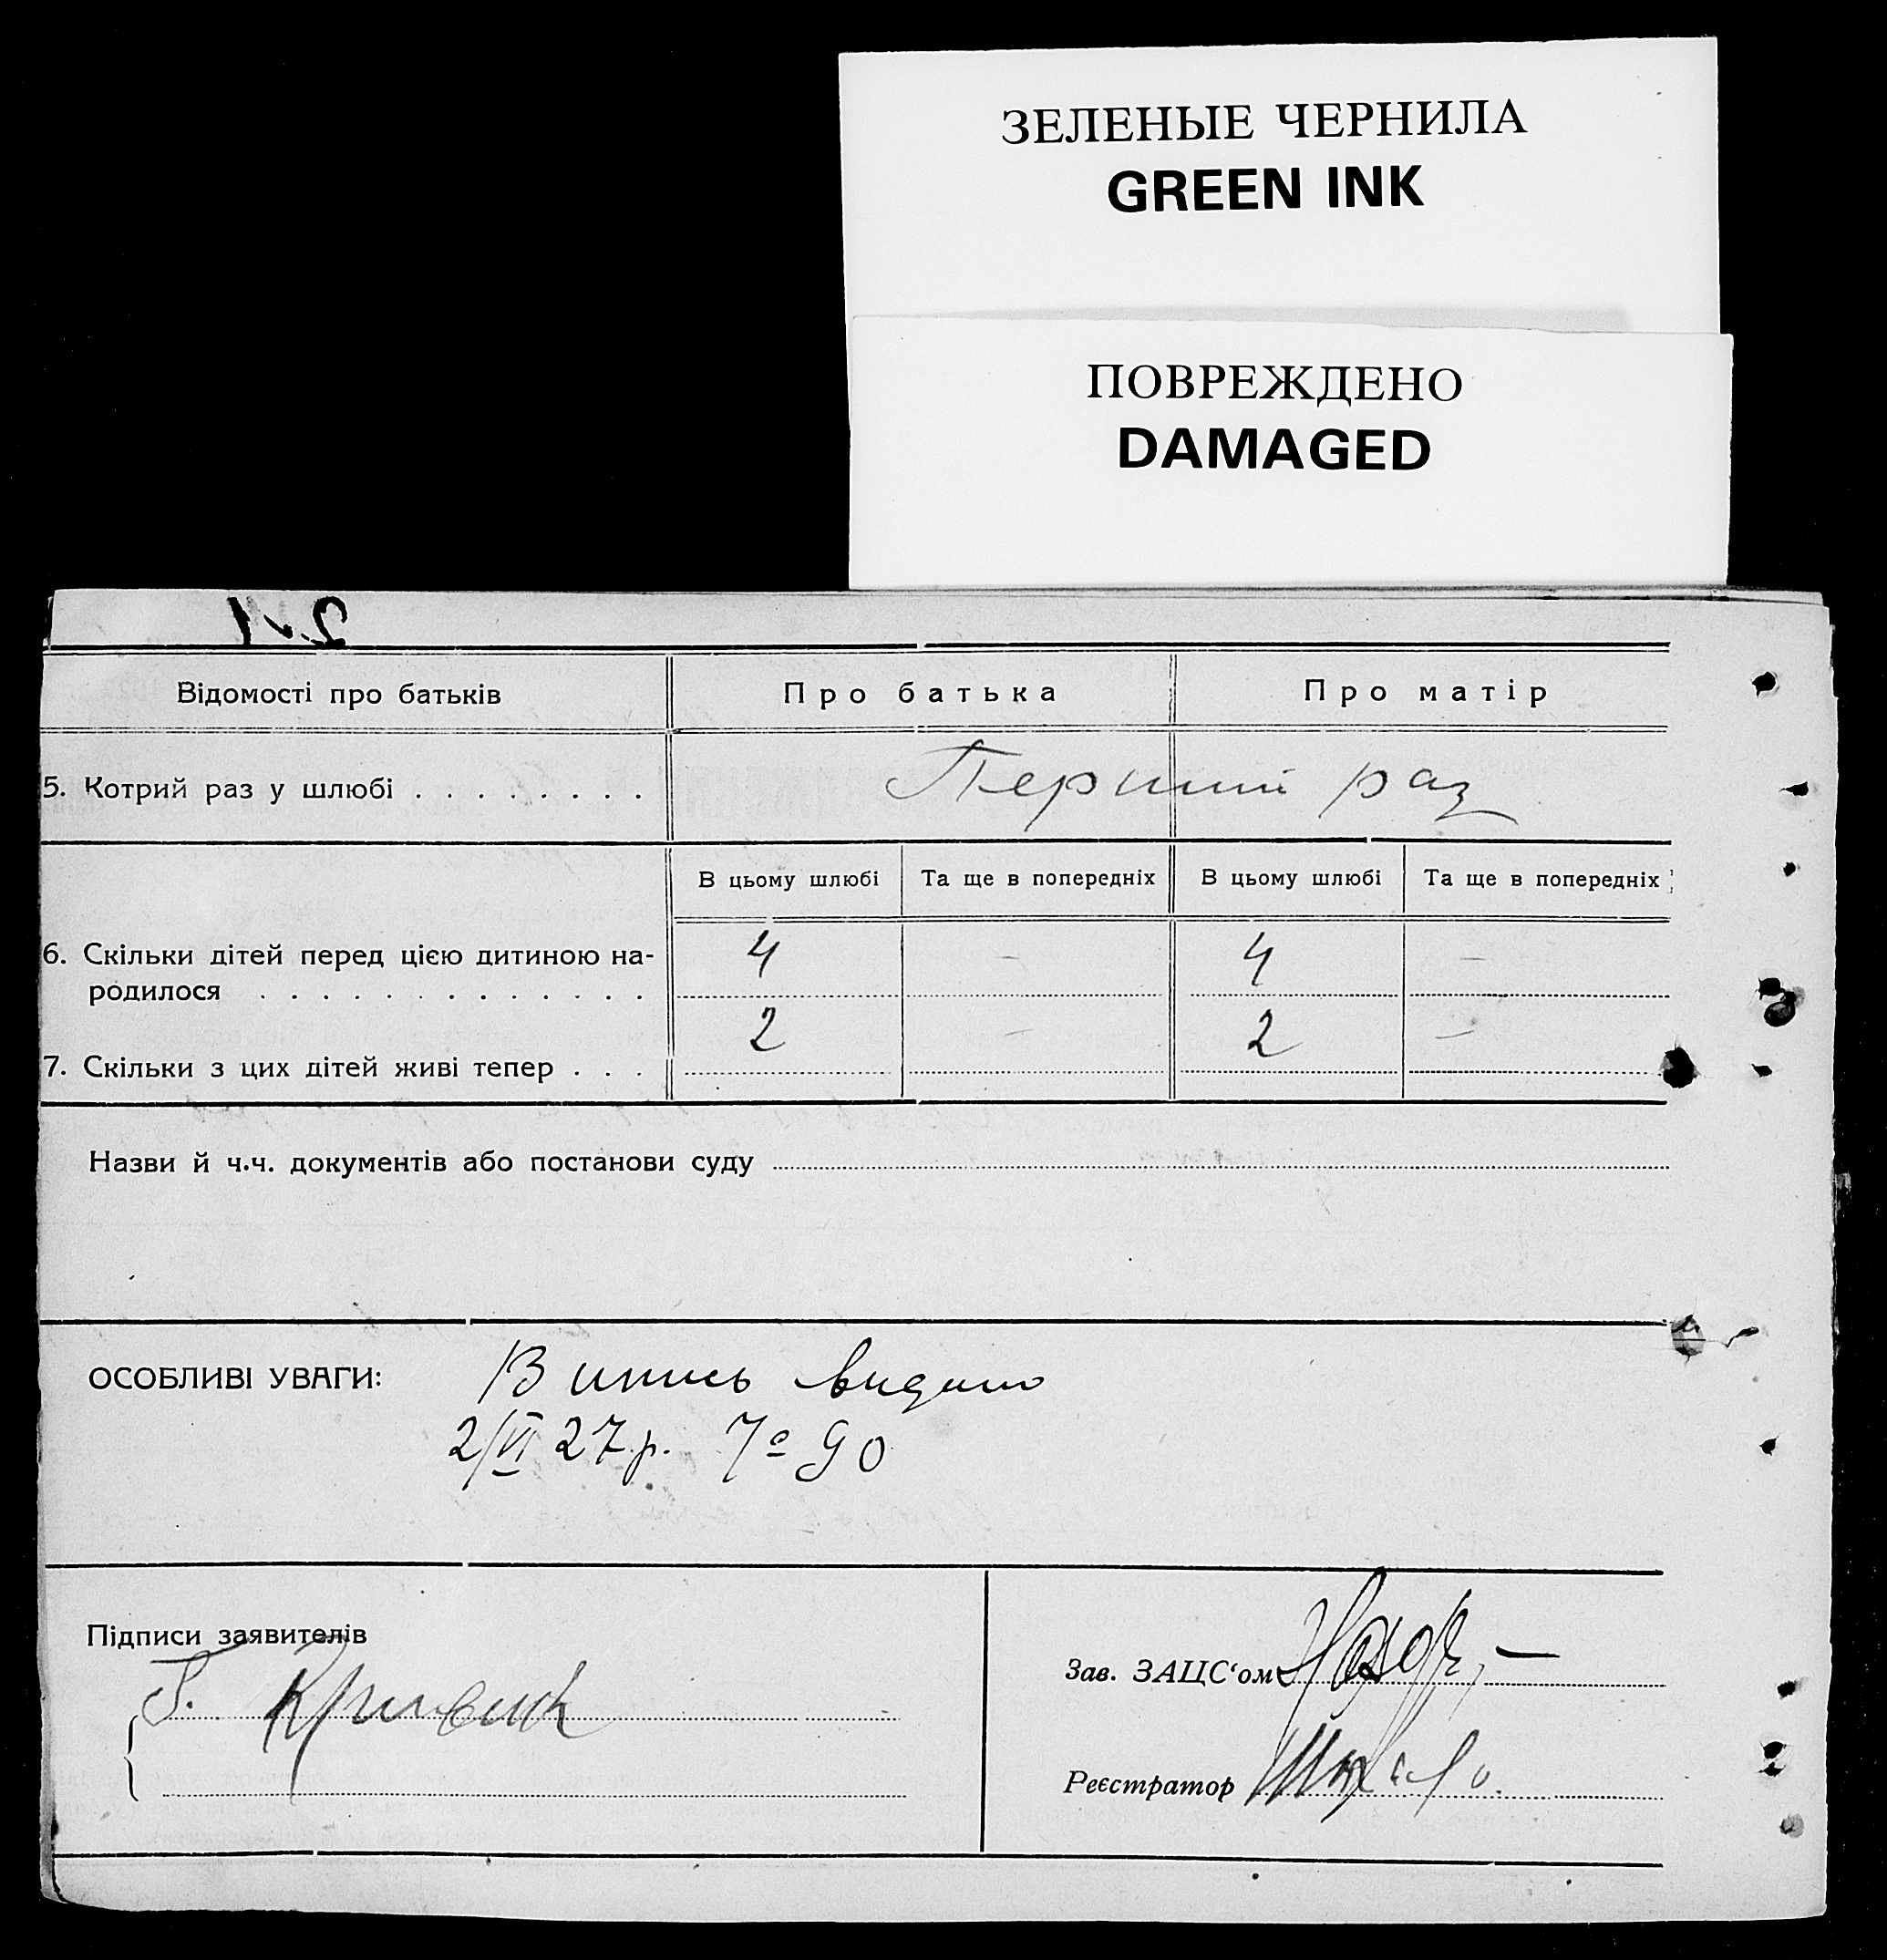 ЗЕЛЕНЫЕ ЧЕРНИЛА
GREEN INK
ПОВРЕЖДЕНО
DAMAGED
Відомості про батьків Про батька Про матір
5. Котрий раз у шлюбі . . . . . . . . Перший раз
В цьому шлюбі Та ще в попередніх В цьому шлюбі Та ще в попередніх
6. Скільки дітей перед цією дитиною на- 4 – 4 –
родилося . . . . . . . . . . . . . .
7. Скільки з цих дітей живі тепер . . . 2 – 2 –
Назви й ч.ч. документів або постанови суду
ОСОБЛИВІ УВАГИ: Випись видано
2/VI 27 р. 90
Підписи заявителів
Зав. ЗАЦС‘ом
Реєстратор